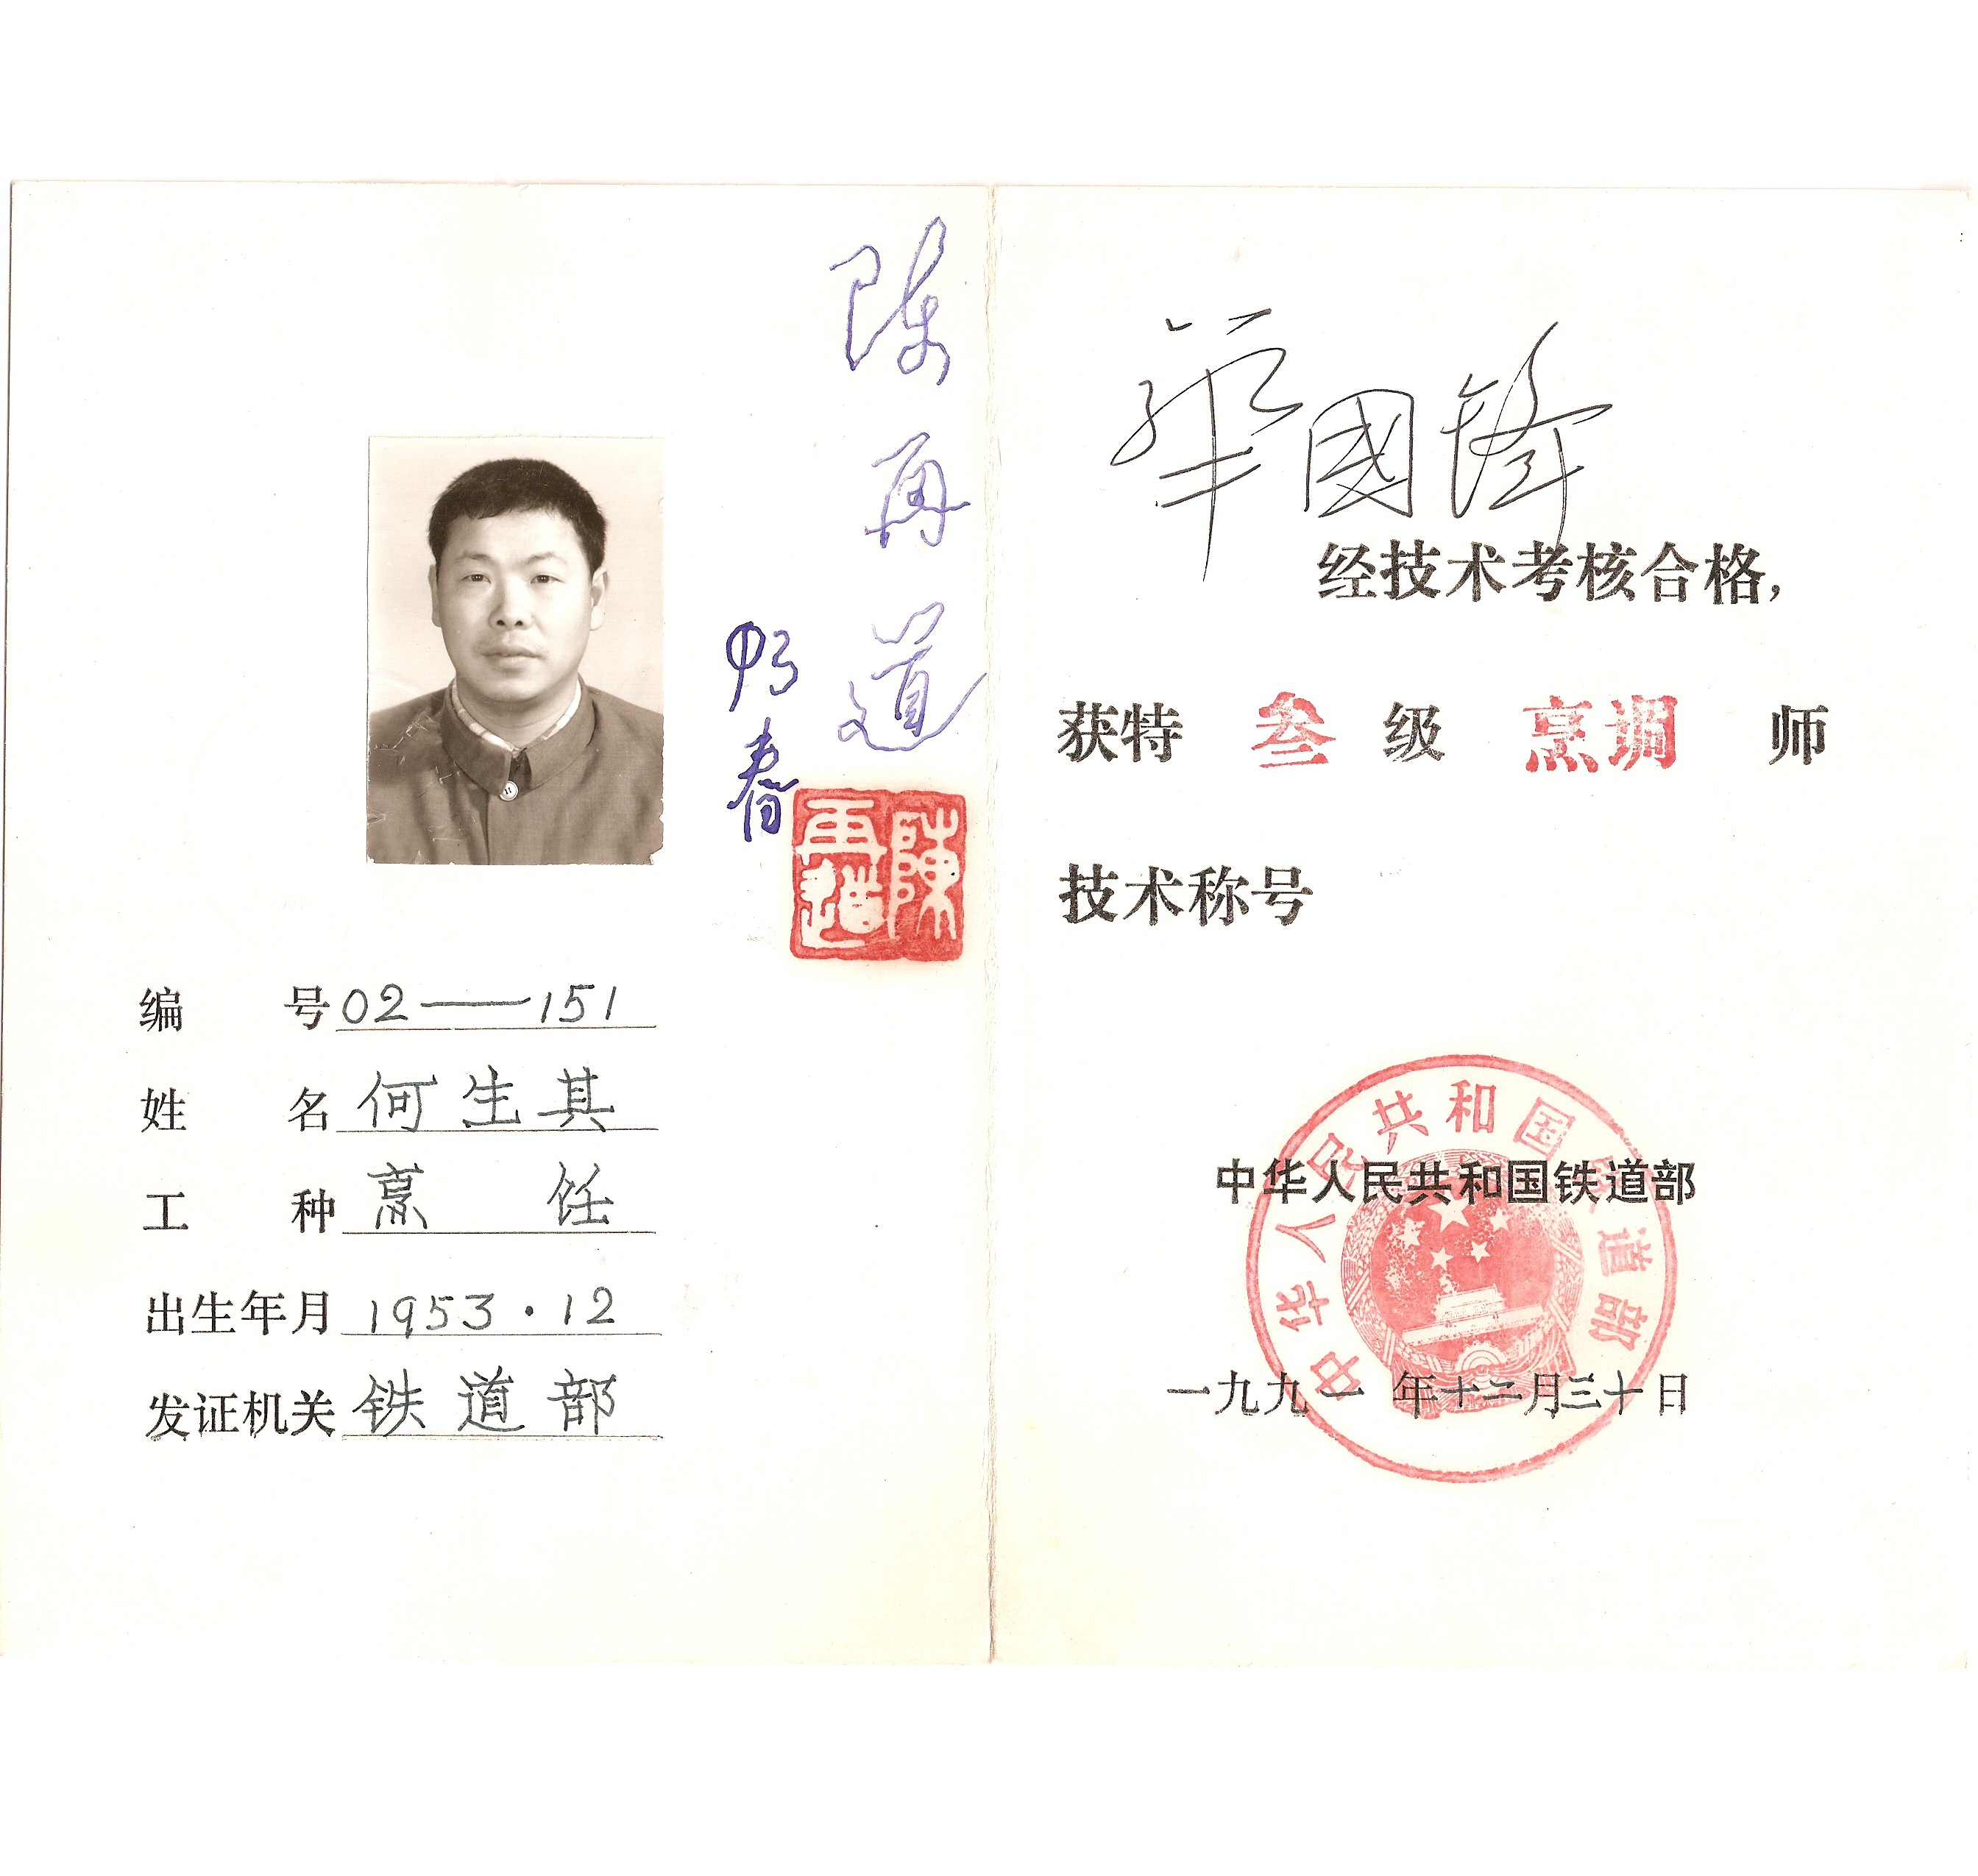 陈再道
邓
春
陳再道
编 号 02——151
姓 名 何生其
工 种 烹 饪
出生年月 1953·12
发证机关 铁道部
華國锋
经技术考核合格，
获特 叁 级 烹调 师
技术称号
中华人民共和国铁道部
中华人民共和国铁道部
一九九一年十二月三十日